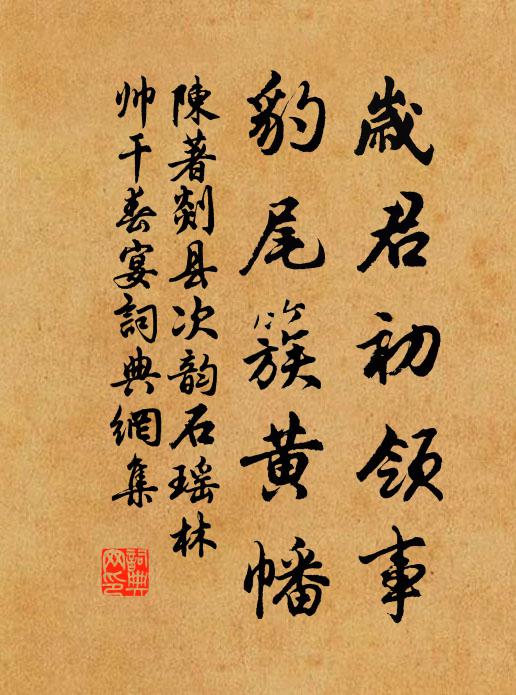 歲君初領事
豹尾簇黄幡
陳著剡县次韵石瑶林
帅干春宴詞典網集
詞典网印